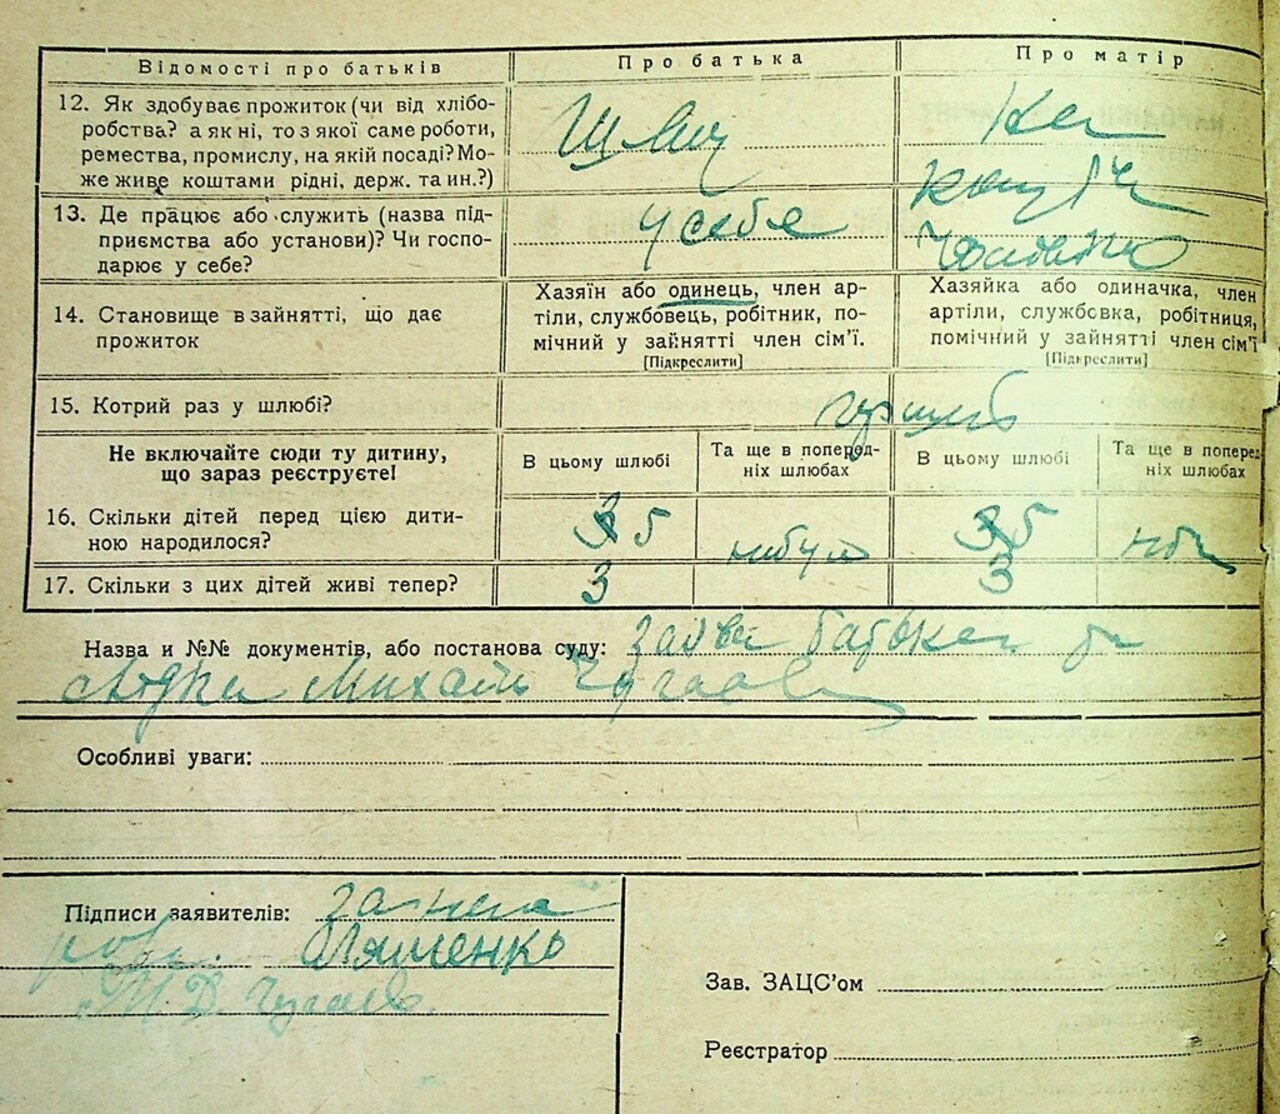 Відомості про батьків
Про батька
Про матір
12. Як здобуває прожиток (чи від хлібо-
робства? а як ні, то з якої саме роботи,
ремества, промислу, на якій посаді? Мо-
же живе коштами рідні, держ. та ин.?)
13. Де працює або служить (назва під-
приємства або установи)? Чи госпо-
дарює у себе?
у себе
14. Становище в зайнятті, що дає
прожиток
Хазяїн або одинець, член ар-
тіли, службовець, робітник, по-
мічний у зайнятті член сім'ї.
[Підкреслити]
Хазяйка або одиначка, член
артіли, службовка, робітниця,
помічний у зайнятті член сім'ї
[Підкреслити]
15. Котрий раз у шлюбі?
Не включайте сюди ту дитину,
що зараз реєструєте!
В цьому шлюбі
Та ще в поперед-
ніх шлюбах
В цьому шлюбі
Та ще в поперед
ніх шлюбах
16. Скільки дітей перед цією дити-
ною народилося?
5
5
17. Скільки з цих дітей живі тепер?
3
3
Назва и №№ документів, або постанова суду:
Михаил
Особливі уваги:
Підписи заявителів:
Ляшенко
М. Д.
Зав. ЗАЦС'ом
Реєстратор